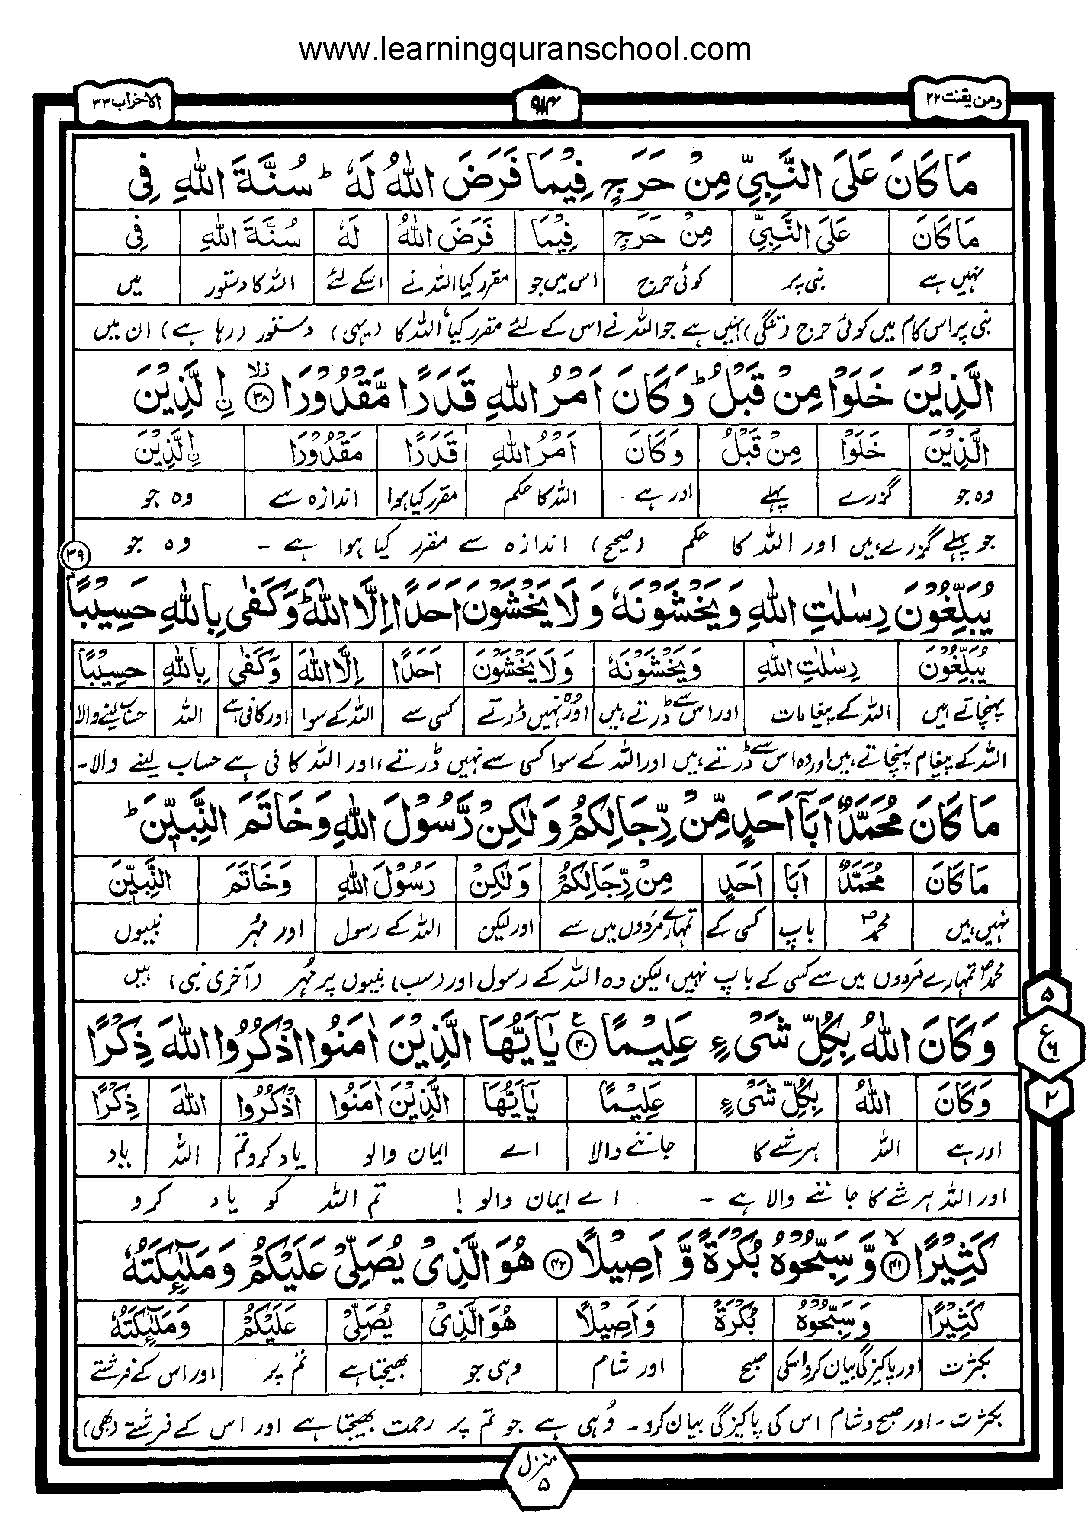 www.learningquranschool.com
ومن یقنت ۲۲
۹۱۴
الاحزاب ۳۳
مَا كَانَ عَلَى النَّبِيِّ مِنْ حَرَجٍ فِيْمَا فَرَضَ اللّٰهُ لَهٗ ؕ سُنَّةَ اللّٰهِ فِی
مَا كَانَ عَلَى النَّبِيِّ مِنْ حَرَجٍ فِيْمَا فَرَضَ اللّٰهُ لَهٗ سُنَّةَ اللّٰهِ فِی
نہیں ہے نبی پر کوئی حرج اس میں جو مقرر کیا اللہ نے اسکے لئے اللہ کا دستور میں
نبی پر اس کام میں کوئی حرج (تنگی) نہیں ہے جو اللہ نے اس کے لئے مقرر کیا، اللہ کا (یہی) دستور (رہا ہے) ان میں
الَّذِيْنَ خَلَوْا مِنْ قَبْلُ ؕ وَكَانَ اَمْرُ اللّٰهِ قَدَرًا مَّقْدُوْرًا ۳۸ ۙ اِ۟لَّذِيْنَ
الَّذِيْنَ خَلَوْا مِنْ قَبْلُ وَكَانَ اَمْرُ اللّٰهِ قَدَرًا مَقْدُوْرًا اِ۟لَّذِيْنَ
وہ جو گزرے پہلے اور ہے اللہ کا حکم مقرر کیا ہوا اندازہ سے وہ جو
جو پہلے گزرے ہیں اور اللہ کا حکم (صحیح) اندازہ سے مقرر کیا ہوا ہے ۔ وہ جو
۳۹
يُبَلِّغُوْنَ رِسٰلٰتِ اللّٰهِ وَيَخْشَوْنَهٗ وَلَا يَخْشَوْنَ اَحَدًا اِلَّا اللّٰهَ ؕ وَكَفٰى بِاللّٰهِ حَسِيْبًا
يُبَلِّغُوْنَ رِسٰلٰتِ اللّٰهِ وَيَخْشَوْنَهٗ وَلَا يَخْشَوْنَ اَحَدًا اِلَّا اللّٰهَ وَكَفٰى بِاللّٰهِ حَسِيْبًا
پہنچاتے ہیں اللہ کے پیغامات اور اس سے ڈرتے ہیں اور وہ نہیں ڈرتے کسی سے اللہ کے سوا اور کافی ہے اللہ حساب لینے والا
اللہ کے پیغام پہنچاتے ہیں اور وہ اس سے ڈرتے ہیں اور اللہ کے سوا کسی سے نہیں ڈرتے، اور اللہ کافی ہے حساب لینے والا۔
مَا كَانَ مُحَمَّدٌ اَبَآ اَحَدٍ مِّنْ رِّجَالِكُمْ وَلٰكِنْ رَّسُوْلَ اللّٰهِ وَخَاتَمَ النَّبِيّٖنَ ؕ
مَا كَانَ مُحَمَّدٌ اَبَا اَحَدٍ مِنْ رِّجَالِكُمْ وَلٰكِنْ رَسُوْلَ اللّٰهِ وَخَاتَمَ النَّبِيّٖنَ
نہیں ہیں محمدؐ باپ کسی کے تمہارے مردوں میں سے اور لیکن اللہ کے رسول اور مہر نبیوں
محمدؐ تمہارے مردوں میں سے کسی کے باپ نہیں، لیکن وہ اللہ کے رسول اور (سب) نبیوں پر مہر (آخری نبی) ہیں
۵
ع
۶
۲
وَكَانَ اللّٰهُ بِكُلِّ شَيْءٍ عَلِيْمًا ۴۰ يٰٓاَيُّهَا الَّذِيْنَ اٰمَنُوا اذْكُرُوا اللّٰهَ ذِكْرًا
وَكَانَ اللّٰهُ بِكُلِّ شَيْءٍ عَلِيْمًا يٰٓاَيُّهَا الَّذِيْنَ اٰمَنُوا اذْكُرُوا اللّٰهَ ذِكْرًا
اور ہے اللہ ہر شے کا جاننے والا اے ایمان والو یاد کرو تم اللہ یاد
اور اللہ ہر شے کا جاننے والا ہے ۔ اے ایمان والو! تم اللہ کو یاد کرو
كَثِيْرًا ۴۱ ۙ وَّسَبِّحُوْهُ بُكْرَةً وَّاَصِيْلًا ۴۲ هُوَ الَّذِیْ يُصَلِّیْ عَلَيْكُمْ وَمَلٰٓئِكَتُهٗ
كَثِيْرًا وَسَبِّحُوْهُ بُكْرَةً وَاَصِيْلًا هُوَ الَّذِیْ يُصَلِّیْ عَلَيْكُمْ وَمَلٰٓئِكَتُهٗ
بکثرت اور پاکیزگی بیان کرو اسکی صبح اور شام وہی جو بھیجتا ہے تم پر اور اس کے فرشتے
بکثرت۔ اور صبح و شام اس کی پاکیزگی بیان کرو۔ وہی ہے جو تم پر رحمت بھیجتا ہے اور اس کے فرشتے (بھی)
منزل ۵